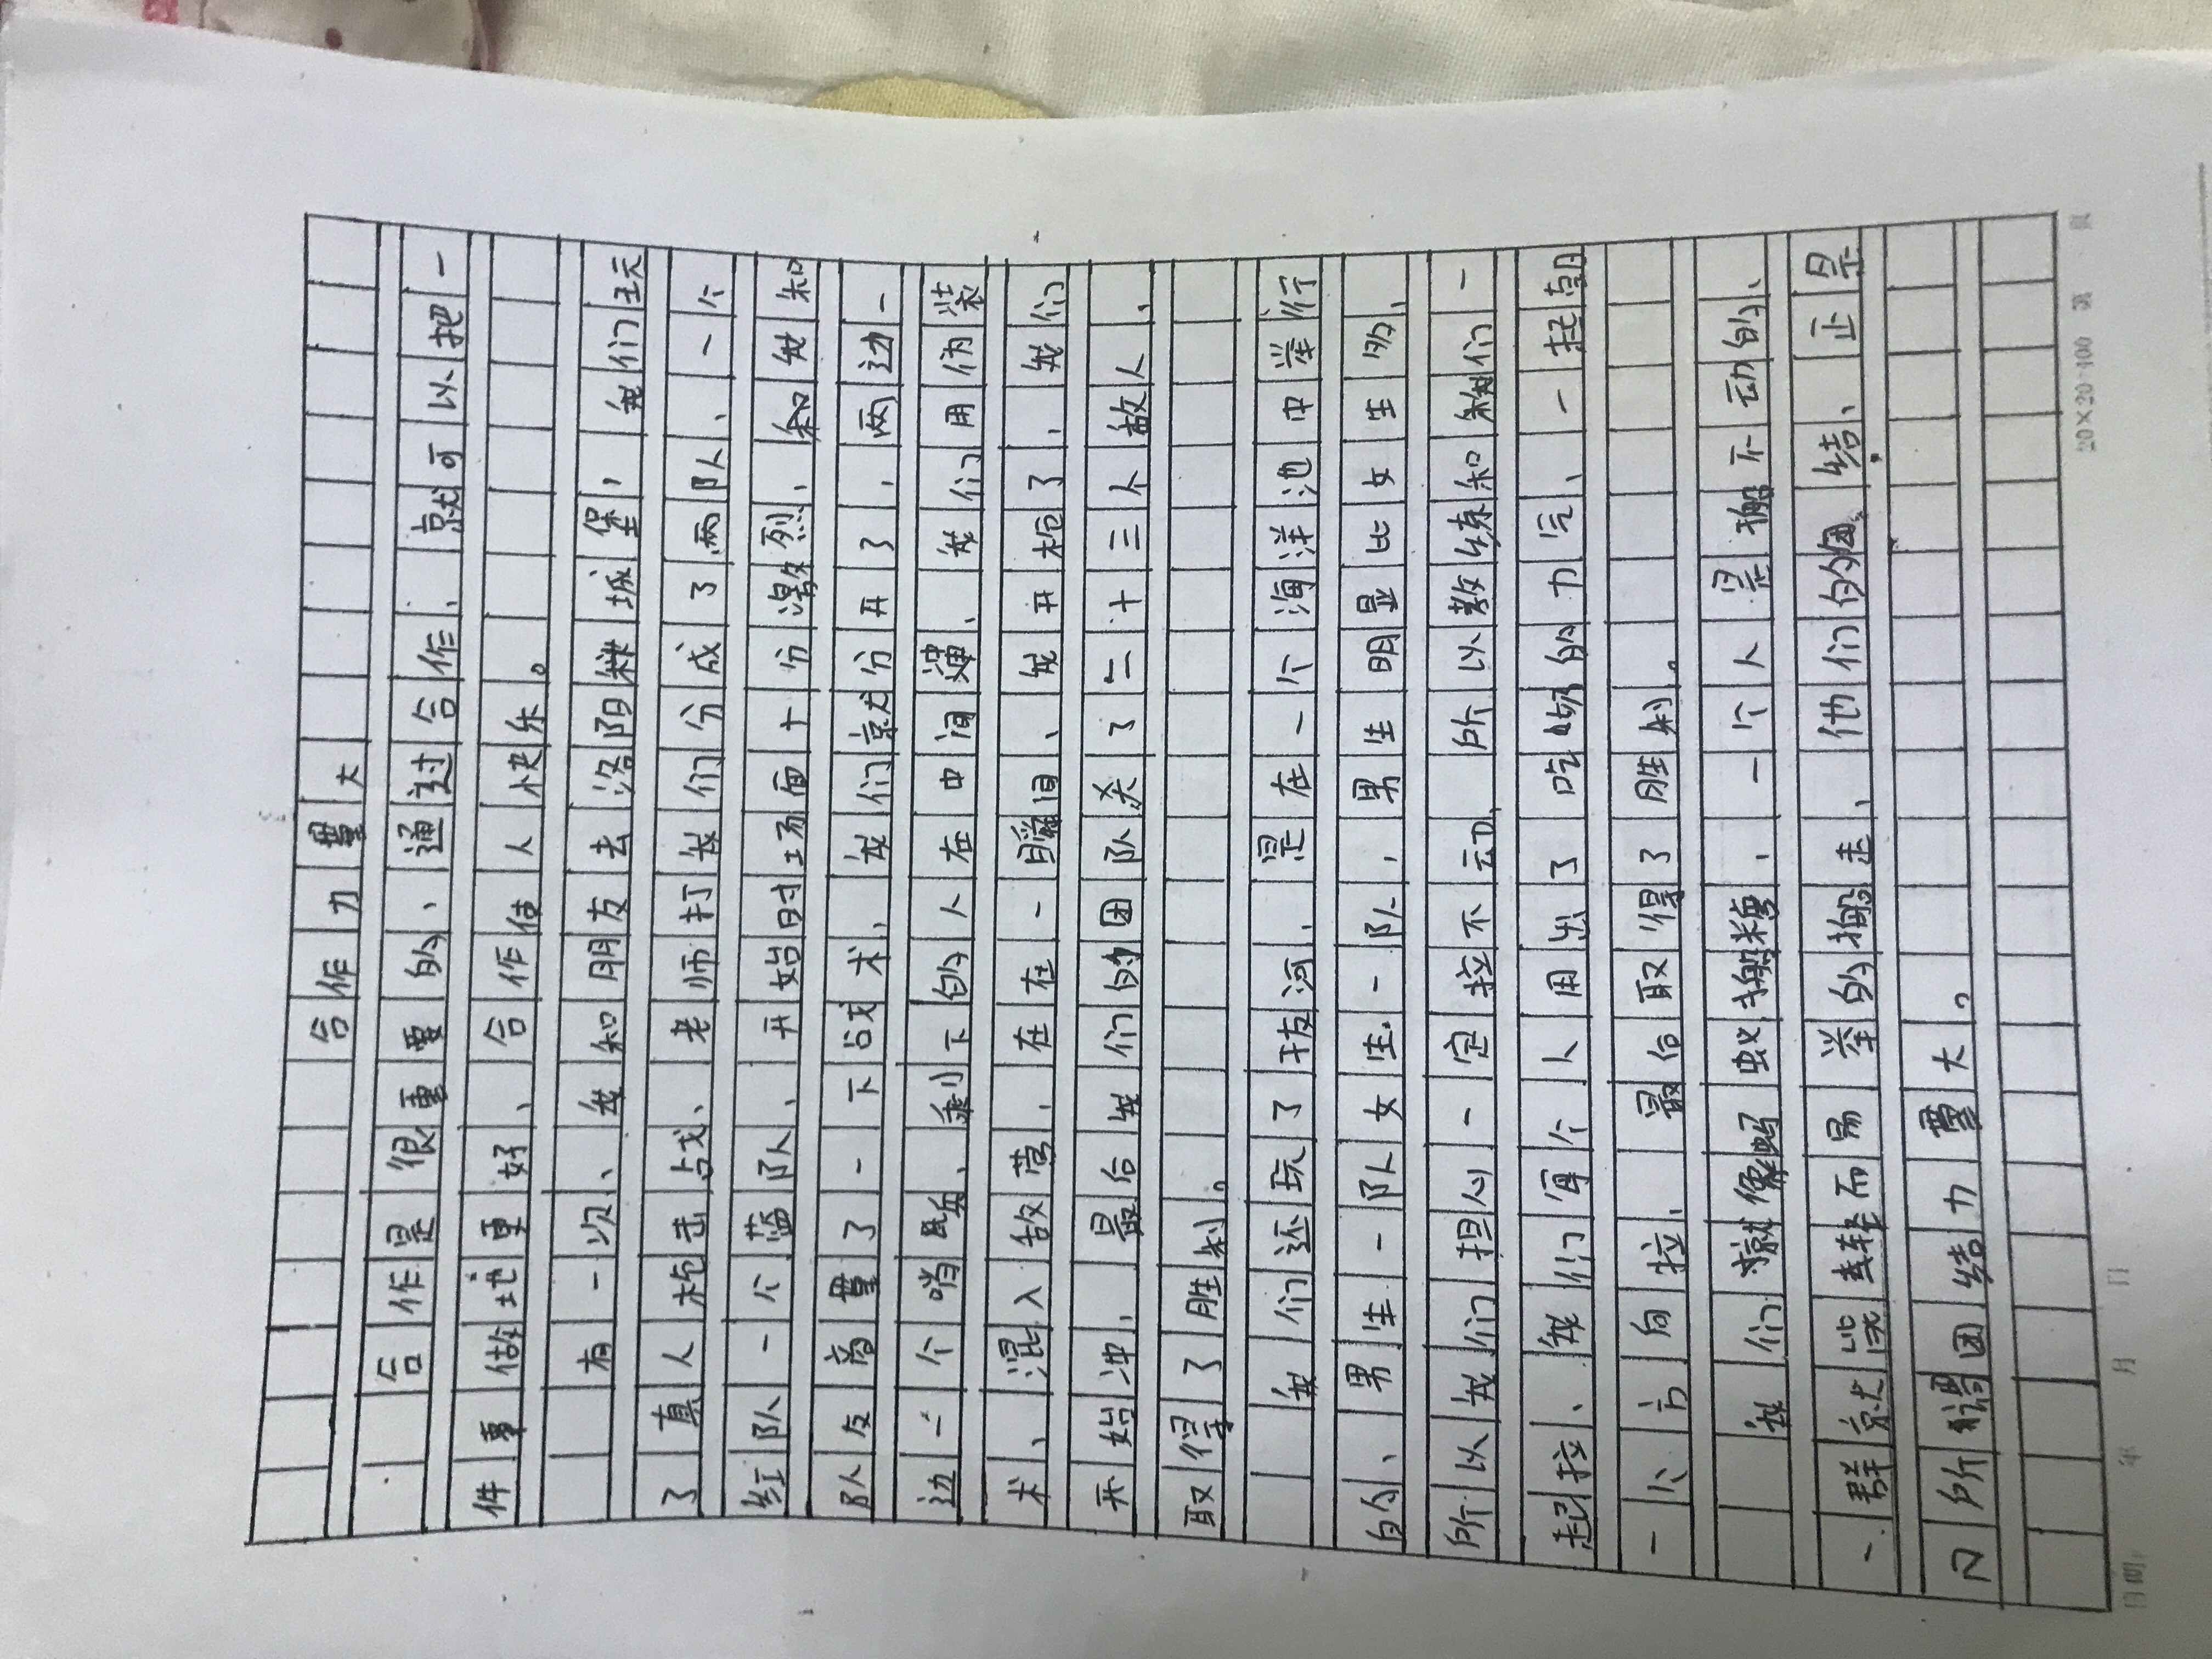 合作力量大
合作是很重要的、通过合作、就可以把一
件事做地更好、合作使人快乐。
有一次、我和朋友去洛阳 城堡，我们玩
了真人枪击战、老师打我们分成了两队、一个
红队一个蓝队、开始时场面十分激烈、和我和
队友商量了一下战术、我们就分开了、两边一
边一个哨兵、剩下的人在中间 、我们用伪装
术、混入敌营、在在一瞬间、我开枪了、我们
开始冲、最后我们的团队杀了二十三个敌人、
取得了胜利。
我们还玩了拔河、是在一个海洋池中举行
的、男生一队女生一队、男生明显比女生多、
所以我们担心一定拉不动、所以教练和我们一
起拉、我们每个人用出了吃奶的力气、一起朝
一个方向拉、最后取得了胜利。
我们就像蚂蚁搬糖、一个人是搬不动的、
一群就能轻而易举的搬走、他们的团结、正是
所谓团结力量大。
20×20=400 第 页
日期: 年 月 日